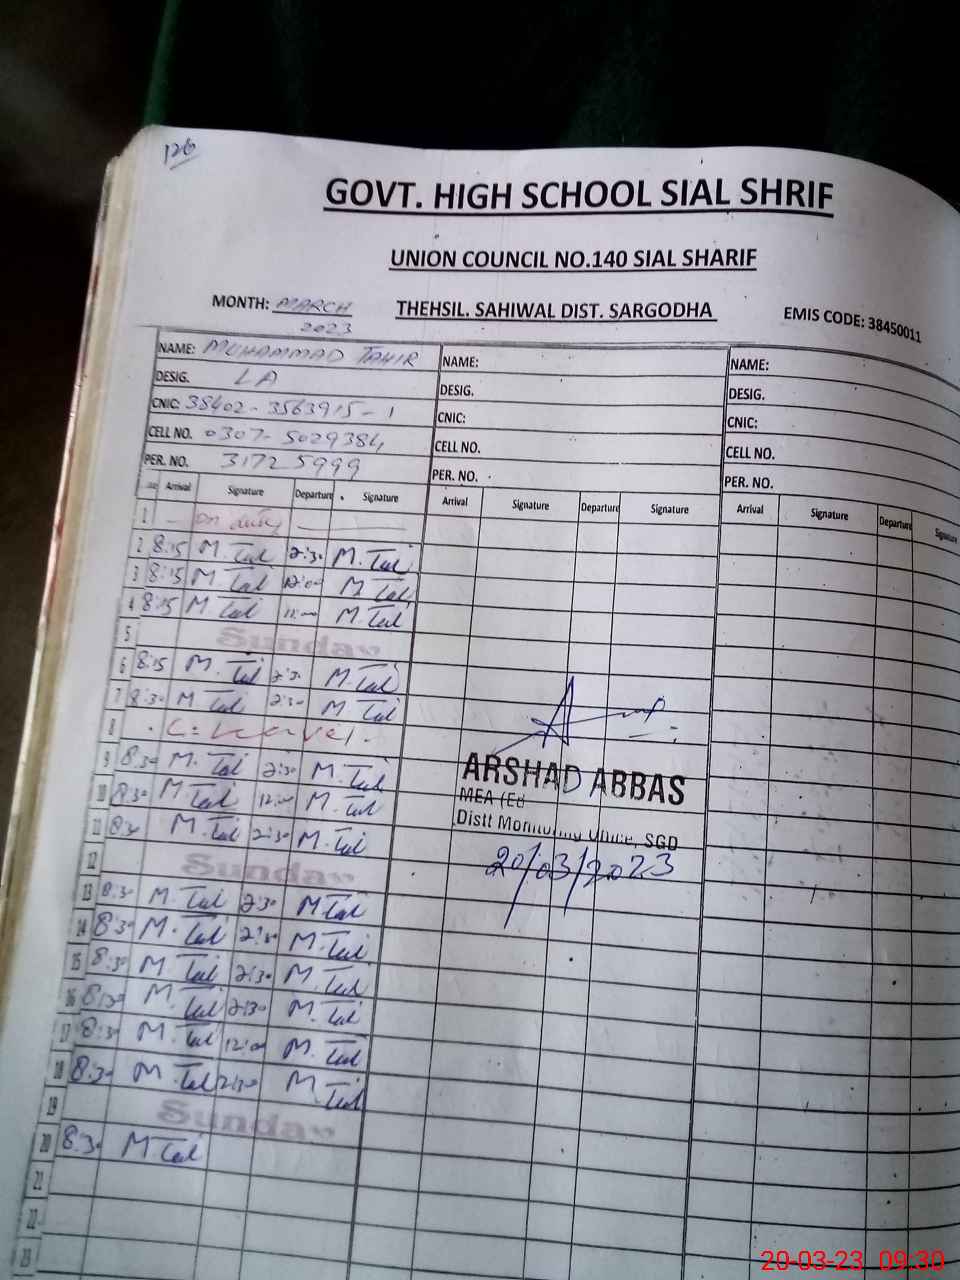 126
GOVT. HIGH SCHOOL SIAL SHRIF
UNION COUNCIL NO.140 SIAL SHARIF
MONTH: MARCH 2023 THEHSIL. SAHIWAL DIST. SARGODHA EMIS CODE: 38450011
NAME: MUHAMMAD TAHIR NAME: NAME:
DESIG. LA DESIG. DESIG.
CNIC: 38402-3563915-1 CNIC: CNIC:
CELL NO. 0307-5029384 CELL NO. CELL NO.
PER. NO. 31725999 PER. NO. PER. NO.
Arrival Signature Departure Signature Arrival Signature Departure Signature Arrival Signature Departure Signature
1 — on duty —
2 8:15 M. 2:30 M.
3 8:15 M. 12:00 M.
4 8:15 M 12:00 M.
5 Sunday
6 8:15 M. 2:30 M.
7 8:30 M 2:30 M.
8 C-Leave
9 8:30 M. 2:30 M.
10 8:30 M 12:00 M.
11 8:30 M. 2:30 M.
ARSHAD ABBAS
MEA (Ed
Distt Monitoring Office, SGD
20/03/2023
12 Sunday
13 8:30 M. 2:30 M
14 8:30 M. 2:30 M.
15 8:30 M. 2:30 M.
16 8:30 M. 2:30 M.
17 8:30 M. 12:00 M.
18 8:30 M. 2:30 M.
19 Sunday
20 8:30 M
21
22
23
20-03-23 09:30